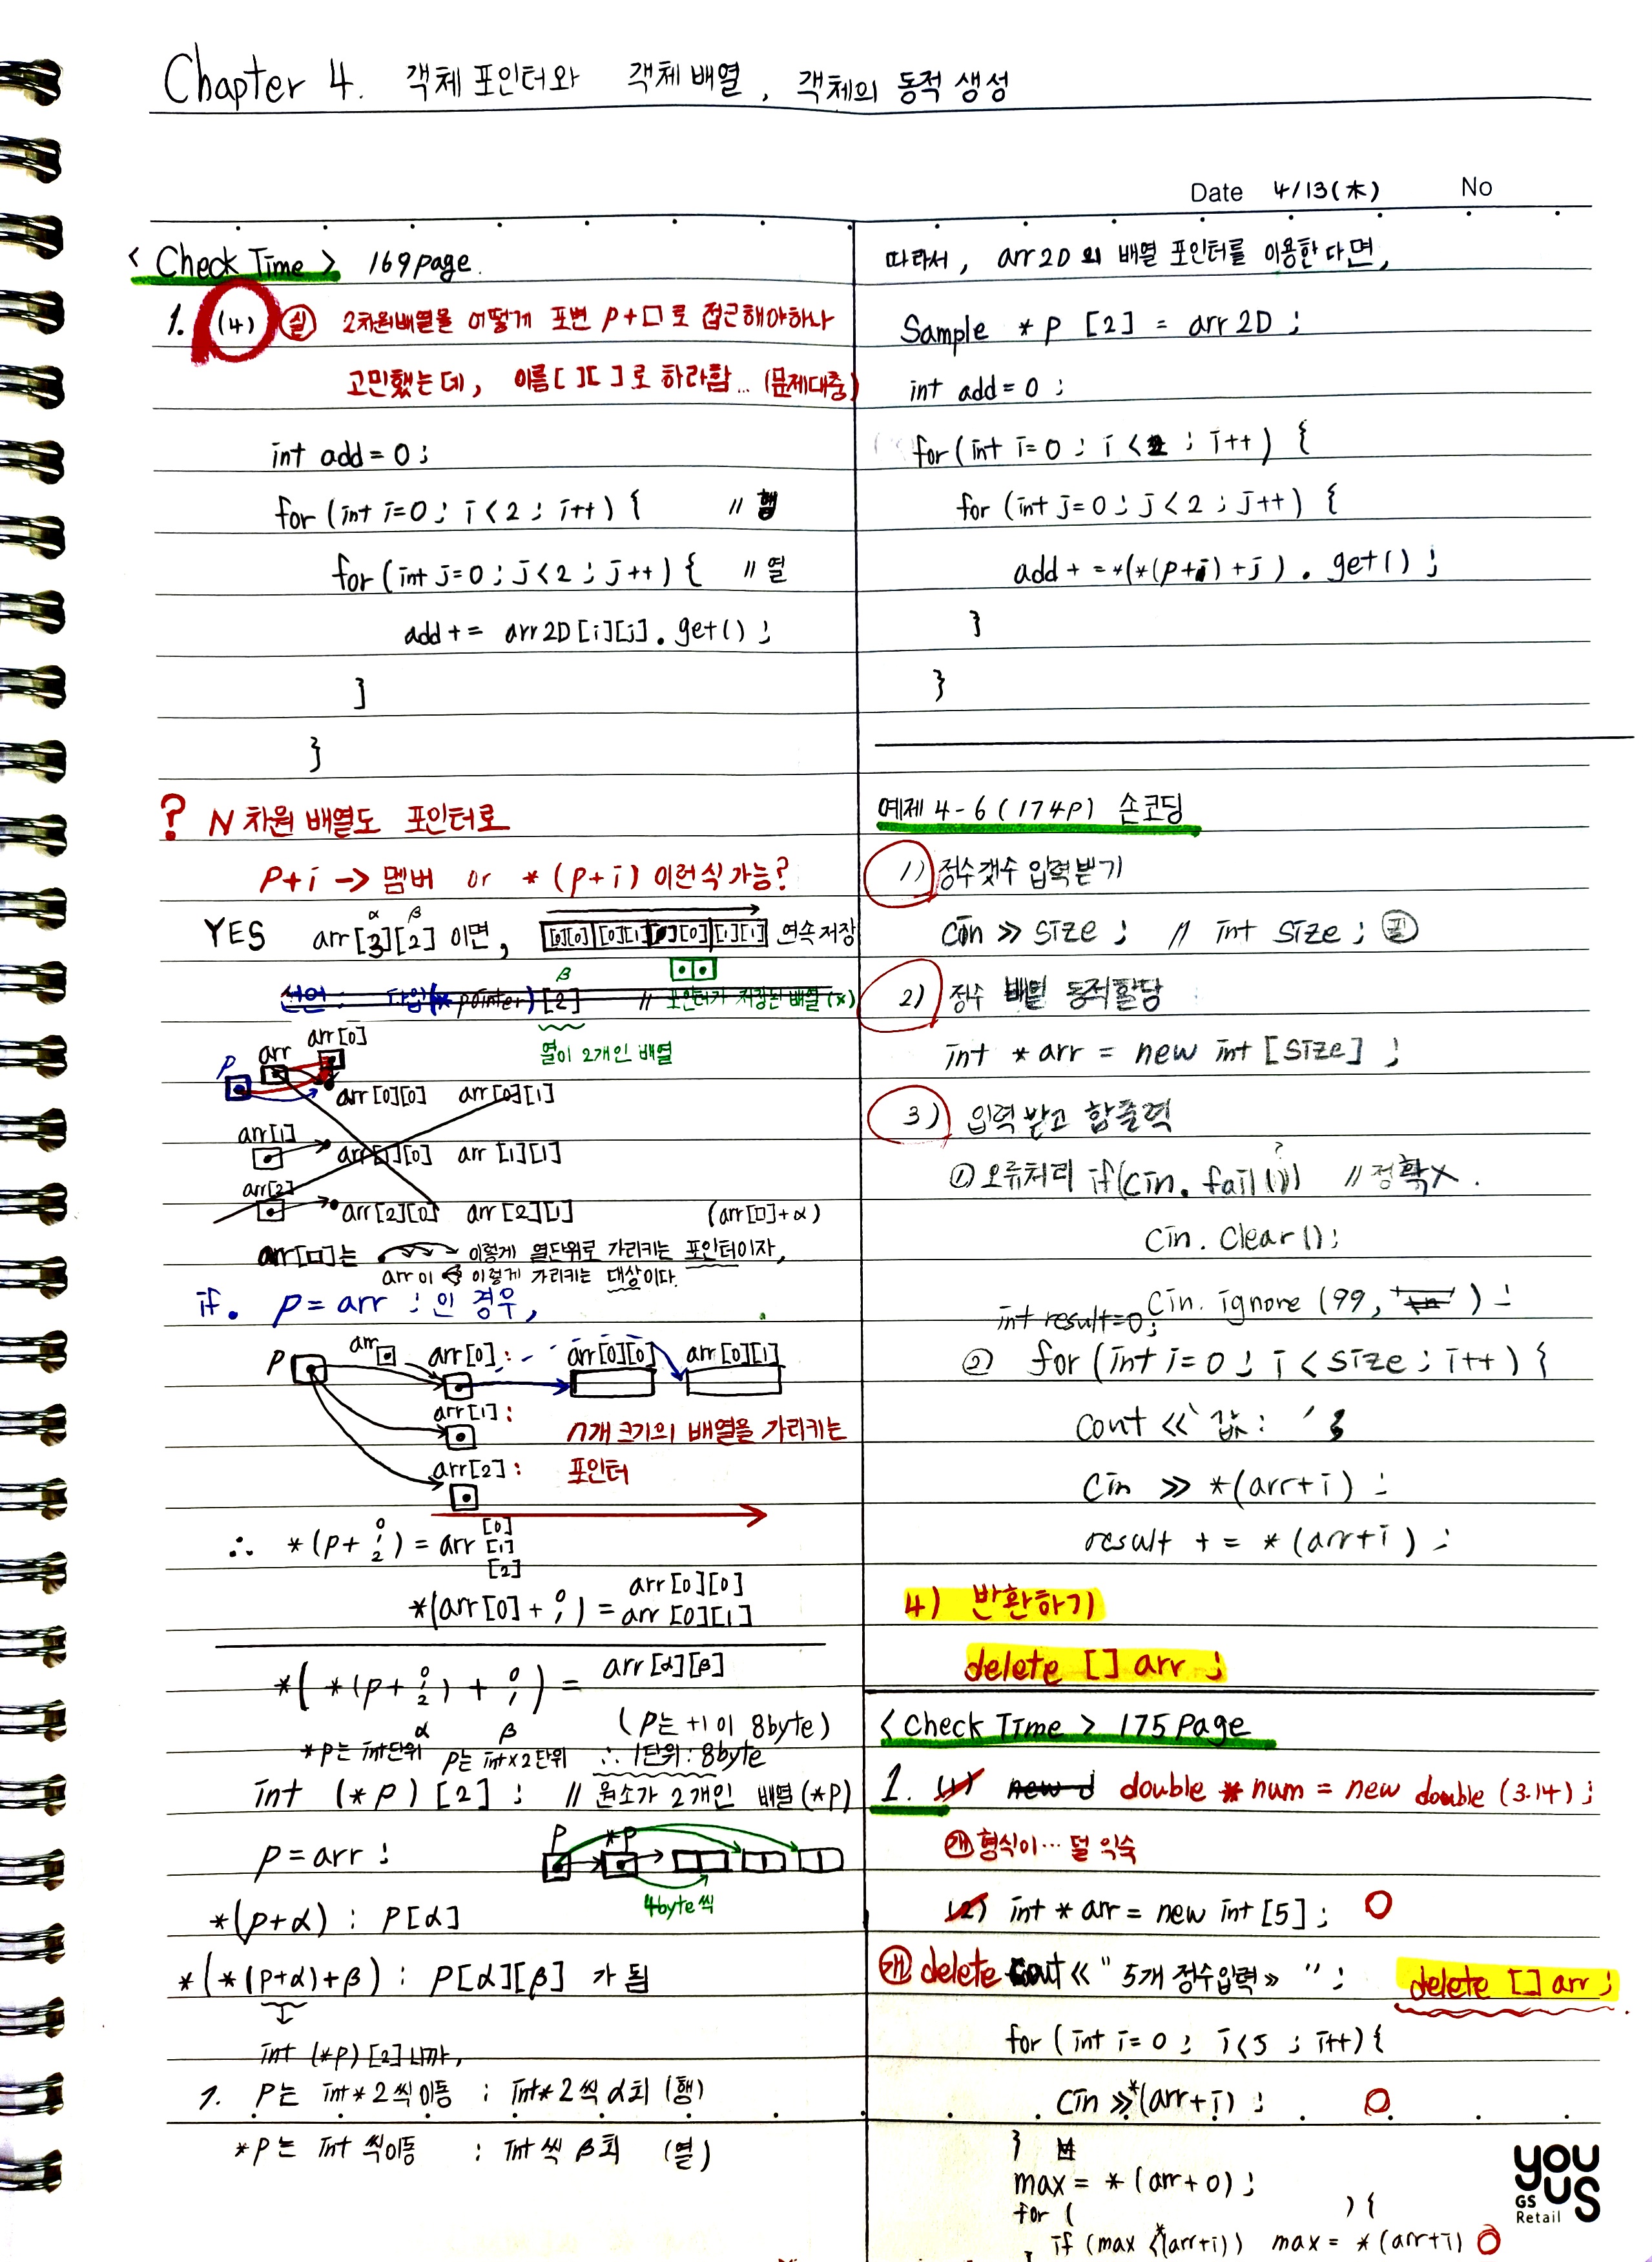 Chapter 4. 객체 포인터와 객체 배열, 객체의 동적 생성
Date 4/13(木) No
< Check Time > 169page.
1. (4) 실 2차원배열을 어떻게 포변 P+□로 접근해야하나
고민했는데, 이름[ ][ ]로 하라함... (문제대충)
int add = 0;
for (int i=0; i<2; i++) { // 행
for (int j=0; j<2; j++) { // 열
add += arr2D[i][j].get();
}
}
? N차원 배열도 포인터로
P+i -> 멤버 or *(p+i) 이런식 가능?
YES arr[3][2] 이면, 연속 저장
α β
[0][0] [0][1] [1][0] [1][1]
β
선언: 타입(*pointer)[2] // 포인터가 저장된 배열(x)
열이 2개인 배열
P arr arr[0]
arr[0][0] arr[0][1]
arr[1]
arr[1][0] arr[1][1]
arr[2]
arr[2][0] arr[2][1] (arr[□]+α)
arr[□]는 이렇게 열단위로 가리키는 포인터이자,
arr이 이렇게 가리키는 대상이다.
if. p = arr ; 인 경우,
P arr arr[0]: arr[0][0] arr[0][1]
arr[1]: n개 크기의 배열을 가리키는
arr[2]: 포인터
∴ *(P+ 0 1 2) = arr [0] [1] [2]
*(arr[0] + 0 1) = arr[0][0] arr[0][1]
*( *(P+ 0 1 2) + 0 1 ) = arr[α][β]
α β (P는 +1이 8byte)
*P는 int단위 P는 int×2단위 ∴ 1단위: 8byte
int (*P)[2]; // 원소가 2개인 배열(*P)
P = arr ; P *P
4byte씩
*(P+α) : P[α]
*(*(P+α)+β) : P[α][β] 가 됨
int (*P)[2]니까,
1. P는 int*2씩 이동 ; int*2씩 α회 (행)
*P는 int 씩 이동 : int씩 β회 (열)
따라서, arr2D의 배열 포인터를 이용한다면,
Sample *P [2] = arr2D ;
int add = 0 ;
for (int i=0 ; i<2 ; i++) {
for (int j=0 ; j<2 ; j++) {
add += *(*(P+i)+j).get() ;
}
}
예제 4-6 (174P) 손코딩
1) 정수갯수 입력받기
cin >> size ; // int size ;
2) 정수 배열 동적할당
int *arr = new int [size] ;
3) 입력 받고 합출력
① 오류처리 if(cin.fail()) // 정확X.
?
cin.clear();
int result=0; cin.ignore (99, '\n') ;
② for (int i=0 ; i<size ; i++) {
cout << '값: ' ;
cin >> *(arr+i) ;
result += *(arr+i) ;
4) 반환하기
delete [] arr ;
< Check Time > 175page
1. (1) new d double *num = new double (3.14) ;
개 형식이... 덜 익숙
(2) int *arr = new int [5] ; O
개 delete cout << " 5개 정수입력» " ; delete [] arr ;
for (int i=0 ; i<5 ; i++){
cin >> *(arr+i) ; O
}
max = *(arr+0) ;
for ( ) {
if (max < *(arr+i)) max = *(arr+i) O
you us
GS Retail